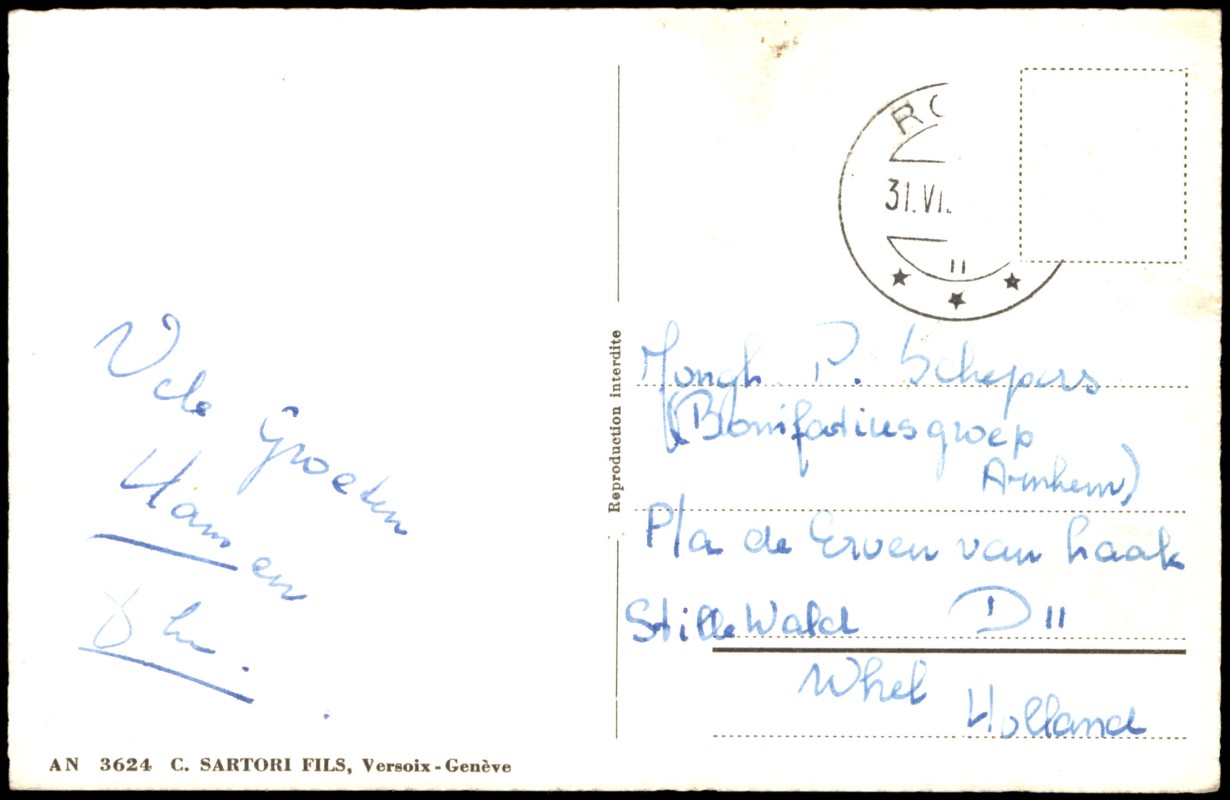 Vele Groeten
Ham en
RO
31.VI.
II
Reproduction interdite
Jongh. P. Schepers
(Bonifatiusgroep
Arnhem)
P/a de Erven van haak
Stille Wald D 11
Whel
Holland
AN 3624 C. SARTORI FILS, Versoix-Genève